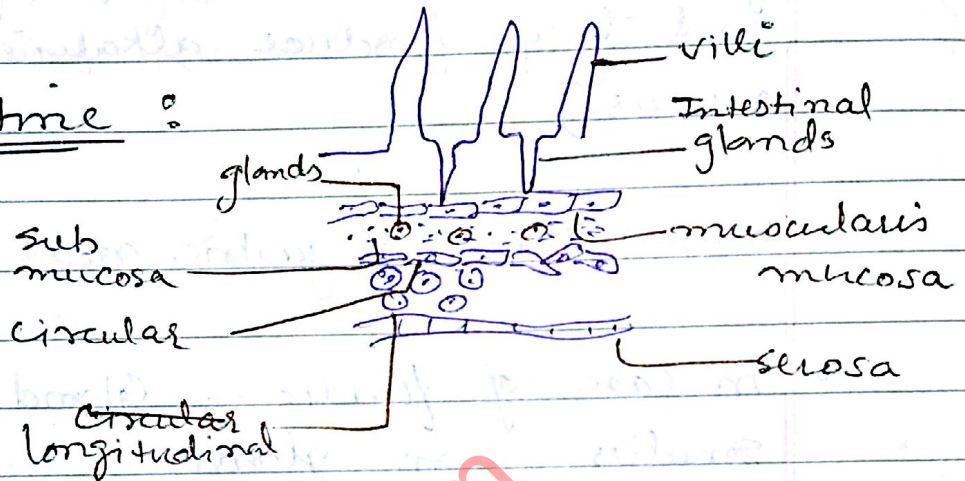 tine :
villi
Intestinal
glands
glands
sub
mucosa
muscularis
mucosa
circular
serosa
circular
longitudinal